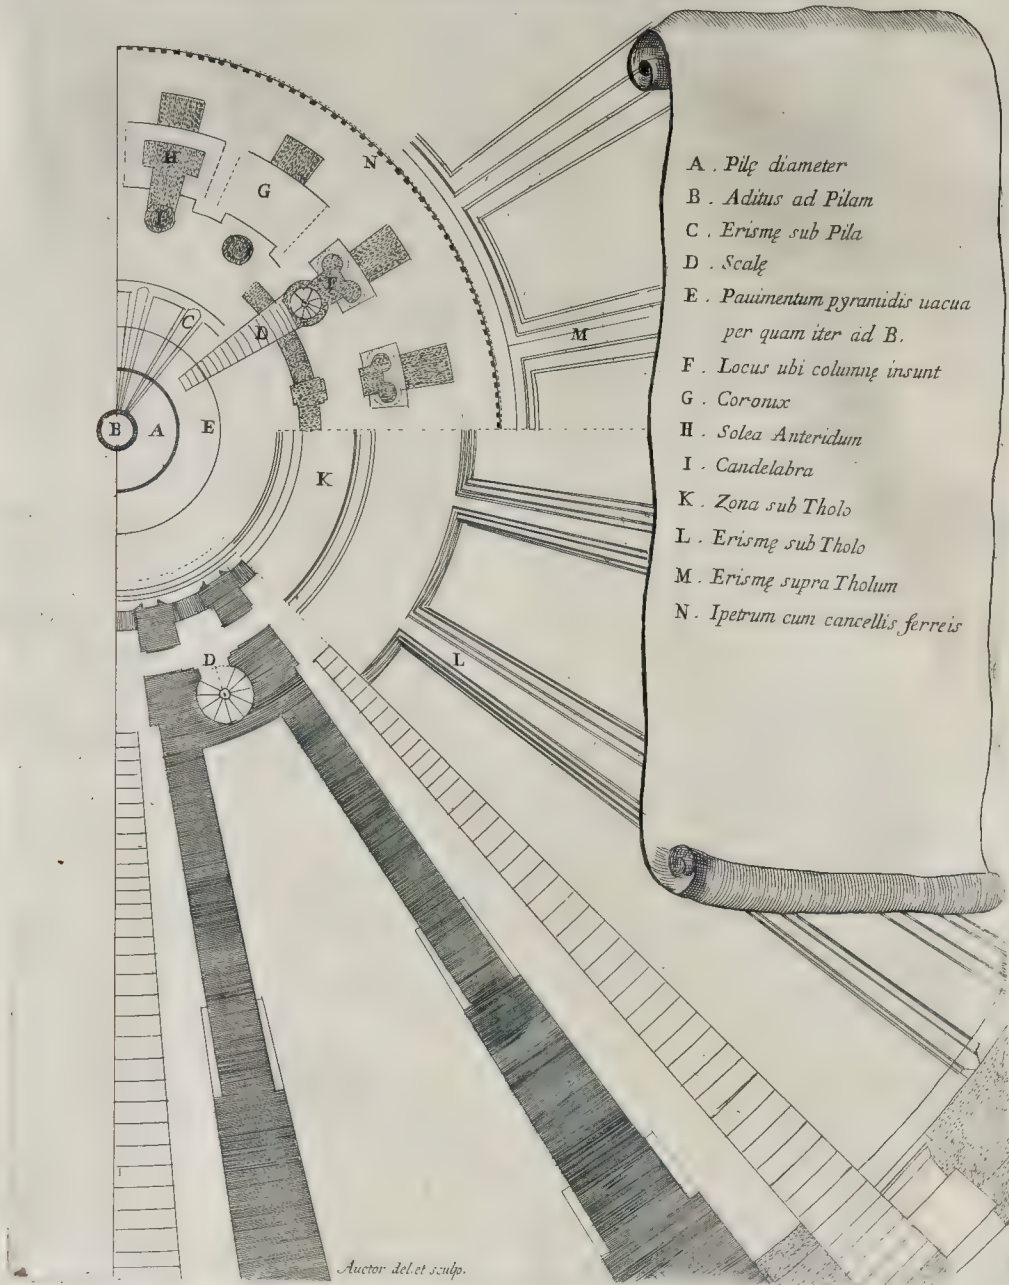 H
N
G
I
F
C
D
M
B
A
E
K
D
L
A . Pilę diameter
B . Aditus ad Pilam
C . Erismę sub Pila
D . Scalę
E . Pauimentum pyramidis uacua
per quam iter ad B.
F . Locus ubi columnę insunt
G . Coronix
H . Solea Anteridum
I . Candelabra
K . Zona sub Tholo
L . Erismę sub Tholo
M . Erismę supra Tholum
N . Ipetrum cum cancellis ferreis
Auctor del. et sculp.